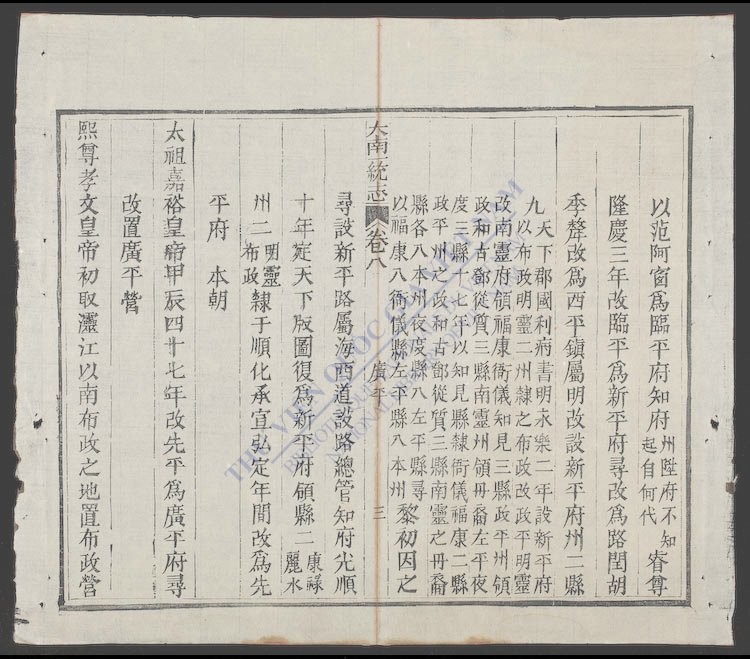 以范阿窗爲臨平府知府州陞府不知起自何代睿尊
隆慶三年改臨平爲新平府尋改爲路閏胡
季犛改爲西平鎮屬明改設新平府州二縣
九天下郡國利病書明永樂二年設新平府
以布政明靈二州隸之布政改政平明靈
改南靈府領福康衙儀知見三縣政平州領
政和古鄧從質三縣南靈州領丹裔左平夜
度三縣十七年以知見縣隸衙儀福康二縣
政平州之政和古鄧從質三縣南靈之丹裔
縣各入本州夜度縣入左平縣尋
以福康入衙儀縣左平縣入本州黎初因之
大南一統志 卷八 廣平 三
尋設新平路屬海西道設路總管知府光順
十年定天下版圖復爲新平府領縣二康祿麗水
州二明靈布政隸于順化承宣弘定年間改爲先
平府 本朝
太祖嘉裕皇帝甲辰四十七年改先平爲廣平府尋
改置廣平營
熙尊孝文皇帝初取江以南布政之地置布政營
THƯ VIỆN QUỐC GIA VIỆT NAM